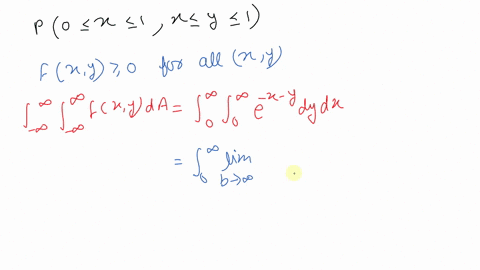 P(0 ≤ x ≤ 1, x ≤ y ≤ 1)
f(x,y) ≥ 0 for all (x,y)
∫_{-∞}^{∞} ∫_{-∞}^{∞} f(x,y) dA = ∫_0^∞ ∫_0^∞ e^{-x-y} dy dx
= ∫_0^∞ lim_{b→∞}